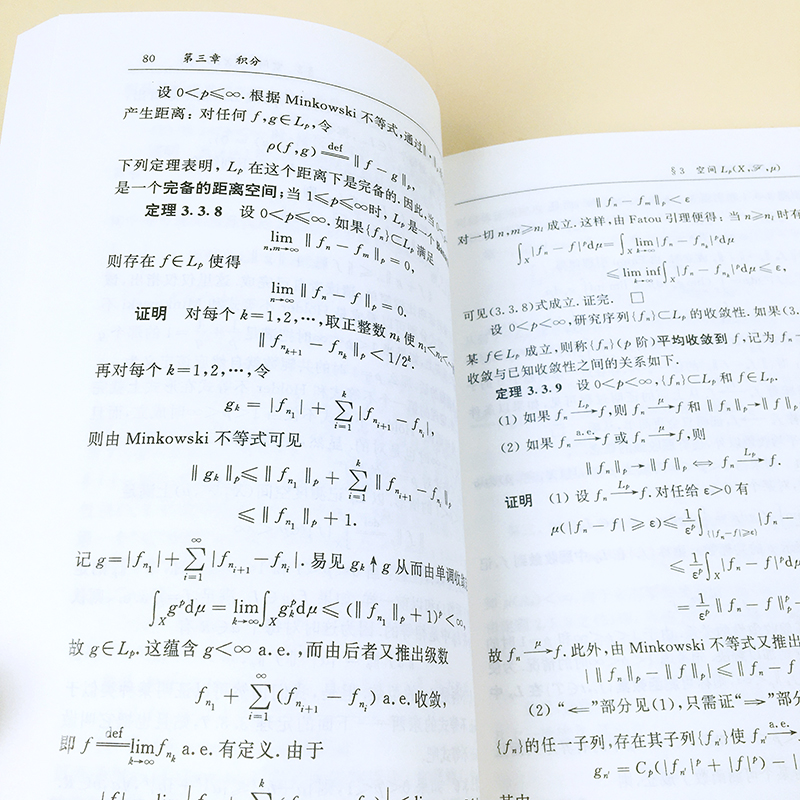 80 第三章 积分
设 0<p≤∞. 根据 Minkowski 不等式, 通过‖·‖
产生距离: 对任何 f,g∈Lₚ, 令
ρ(f,g) =def= ‖f−g‖ₚ,
下列定理表明, Lₚ 在这个距离下是完备的. 因此, 当
是一个完备的距离空间; 当 1≤p≤∞时, Lₚ 是一个
定理 3.3.8 设 0<p≤∞. 如果{fₙ}⊂Lₚ 满足
lim_{n,m→∞} ‖fₙ−fₘ‖ₚ=0,
则存在 f∈Lₚ 使得
lim_{n→∞} ‖fₙ−f‖ₚ=0.
证明 对每个 k=1,2,…, 取正整数 n_k 使 n₁<n₂<
‖f_{n_{k+1}}−f_{n_k}‖ₚ<1/2^k.
再对每个 k=1,2,…, 令
g_k=|f_{n_1}|+∑_{i=1}^{k}|f_{n_{i+1}}−f_{n_i}|,
则由 Minkowski 不等式可见
‖g_k‖ₚ≤‖f_{n_1}‖ₚ+∑_{i=1}^{k}‖f_{n_{i+1}}−f_{n_i}‖ₚ
≤‖f_{n_1}‖ₚ+1.
记 g=|f_{n_1}|+∑_{i=1}^{∞}|f_{n_{i+1}}−f_{n_i}|. 易见 g_k↑g 从而由单调收
∫_X g^p dμ=lim_{k→∞}∫_X g_k^p dμ≤(‖f_{n_1}‖ₚ+1)^p<∞,
故 g∈Lₚ. 这蕴含 g<∞ a.e., 而由后者又推出级数
f_{n_1}+∑_{i=1}^{∞}(f_{n_{i+1}}−f_{n_i}) a.e.收敛,
即 f =def= lim_{k→∞} f_{n_k} a.e. 有定义. 由于
§3 空间 Lₚ(X,ℱ,μ)
‖fₙ−fₘ‖ₚ<ε
对一切 n,m≥nᵢ 成立. 这样, 由 Fatou 引理便得: 当 n≥nᵢ 时有
∫_X|fₙ−f|^p dμ=∫_X lim_{k→∞}|fₙ−f_{n_k}|^p dμ
≤lim inf_{k→∞}∫_X|fₙ−f_{n_k}|^p dμ≤ε,
可见(3.3.8)式成立. 证完. □
设 0<p<∞, 研究序列{fₙ}⊂Lₚ 的收敛性. 如果(3.
某 f∈Lₚ 成立, 则称{fₙ}(p 阶)平均收敛到 f, 记为 fₙ
收敛与已知收敛性之间的关系如下.
定理 3.3.9 设 0<p<∞,{fₙ}⊂Lₚ 和 f∈Lₚ.
(1) 如果 fₙ —Lₚ→ f, 则 fₙ —μ→ f 和 ‖fₙ‖ₚ→‖f‖ₚ
(2) 如果 fₙ —a.e.→ f 或 fₙ —μ→ f, 则
‖fₙ‖ₚ→‖f‖ₚ ⟺ fₙ —Lₚ→ f.
证明 (1) 设 fₙ —Lₚ→ f. 对任给 ε>0 有
μ(|fₙ−f|≥ε)≤1/ε^p ∫_{{|fₙ−f|≥ε}}|fₙ−
≤1/ε^p ∫_X|fₙ−f|^p dμ
=1/ε^p ‖fₙ−f‖ₚ^p
故 fₙ —μ→ f. 此外, 由 Minkowski 不等式又推出
|‖fₙ‖ₚ−‖f‖ₚ|≤‖fₙ−f
(2) “⟸”部分见(1), 只需证“⟹”部分
{fₙ}的任一子列, 存在其子列{fₙ′}使 fₙ′ —a.e.→
gₙ′=Cₚ(|fₙ′|^p+|f|^p)−|
其中